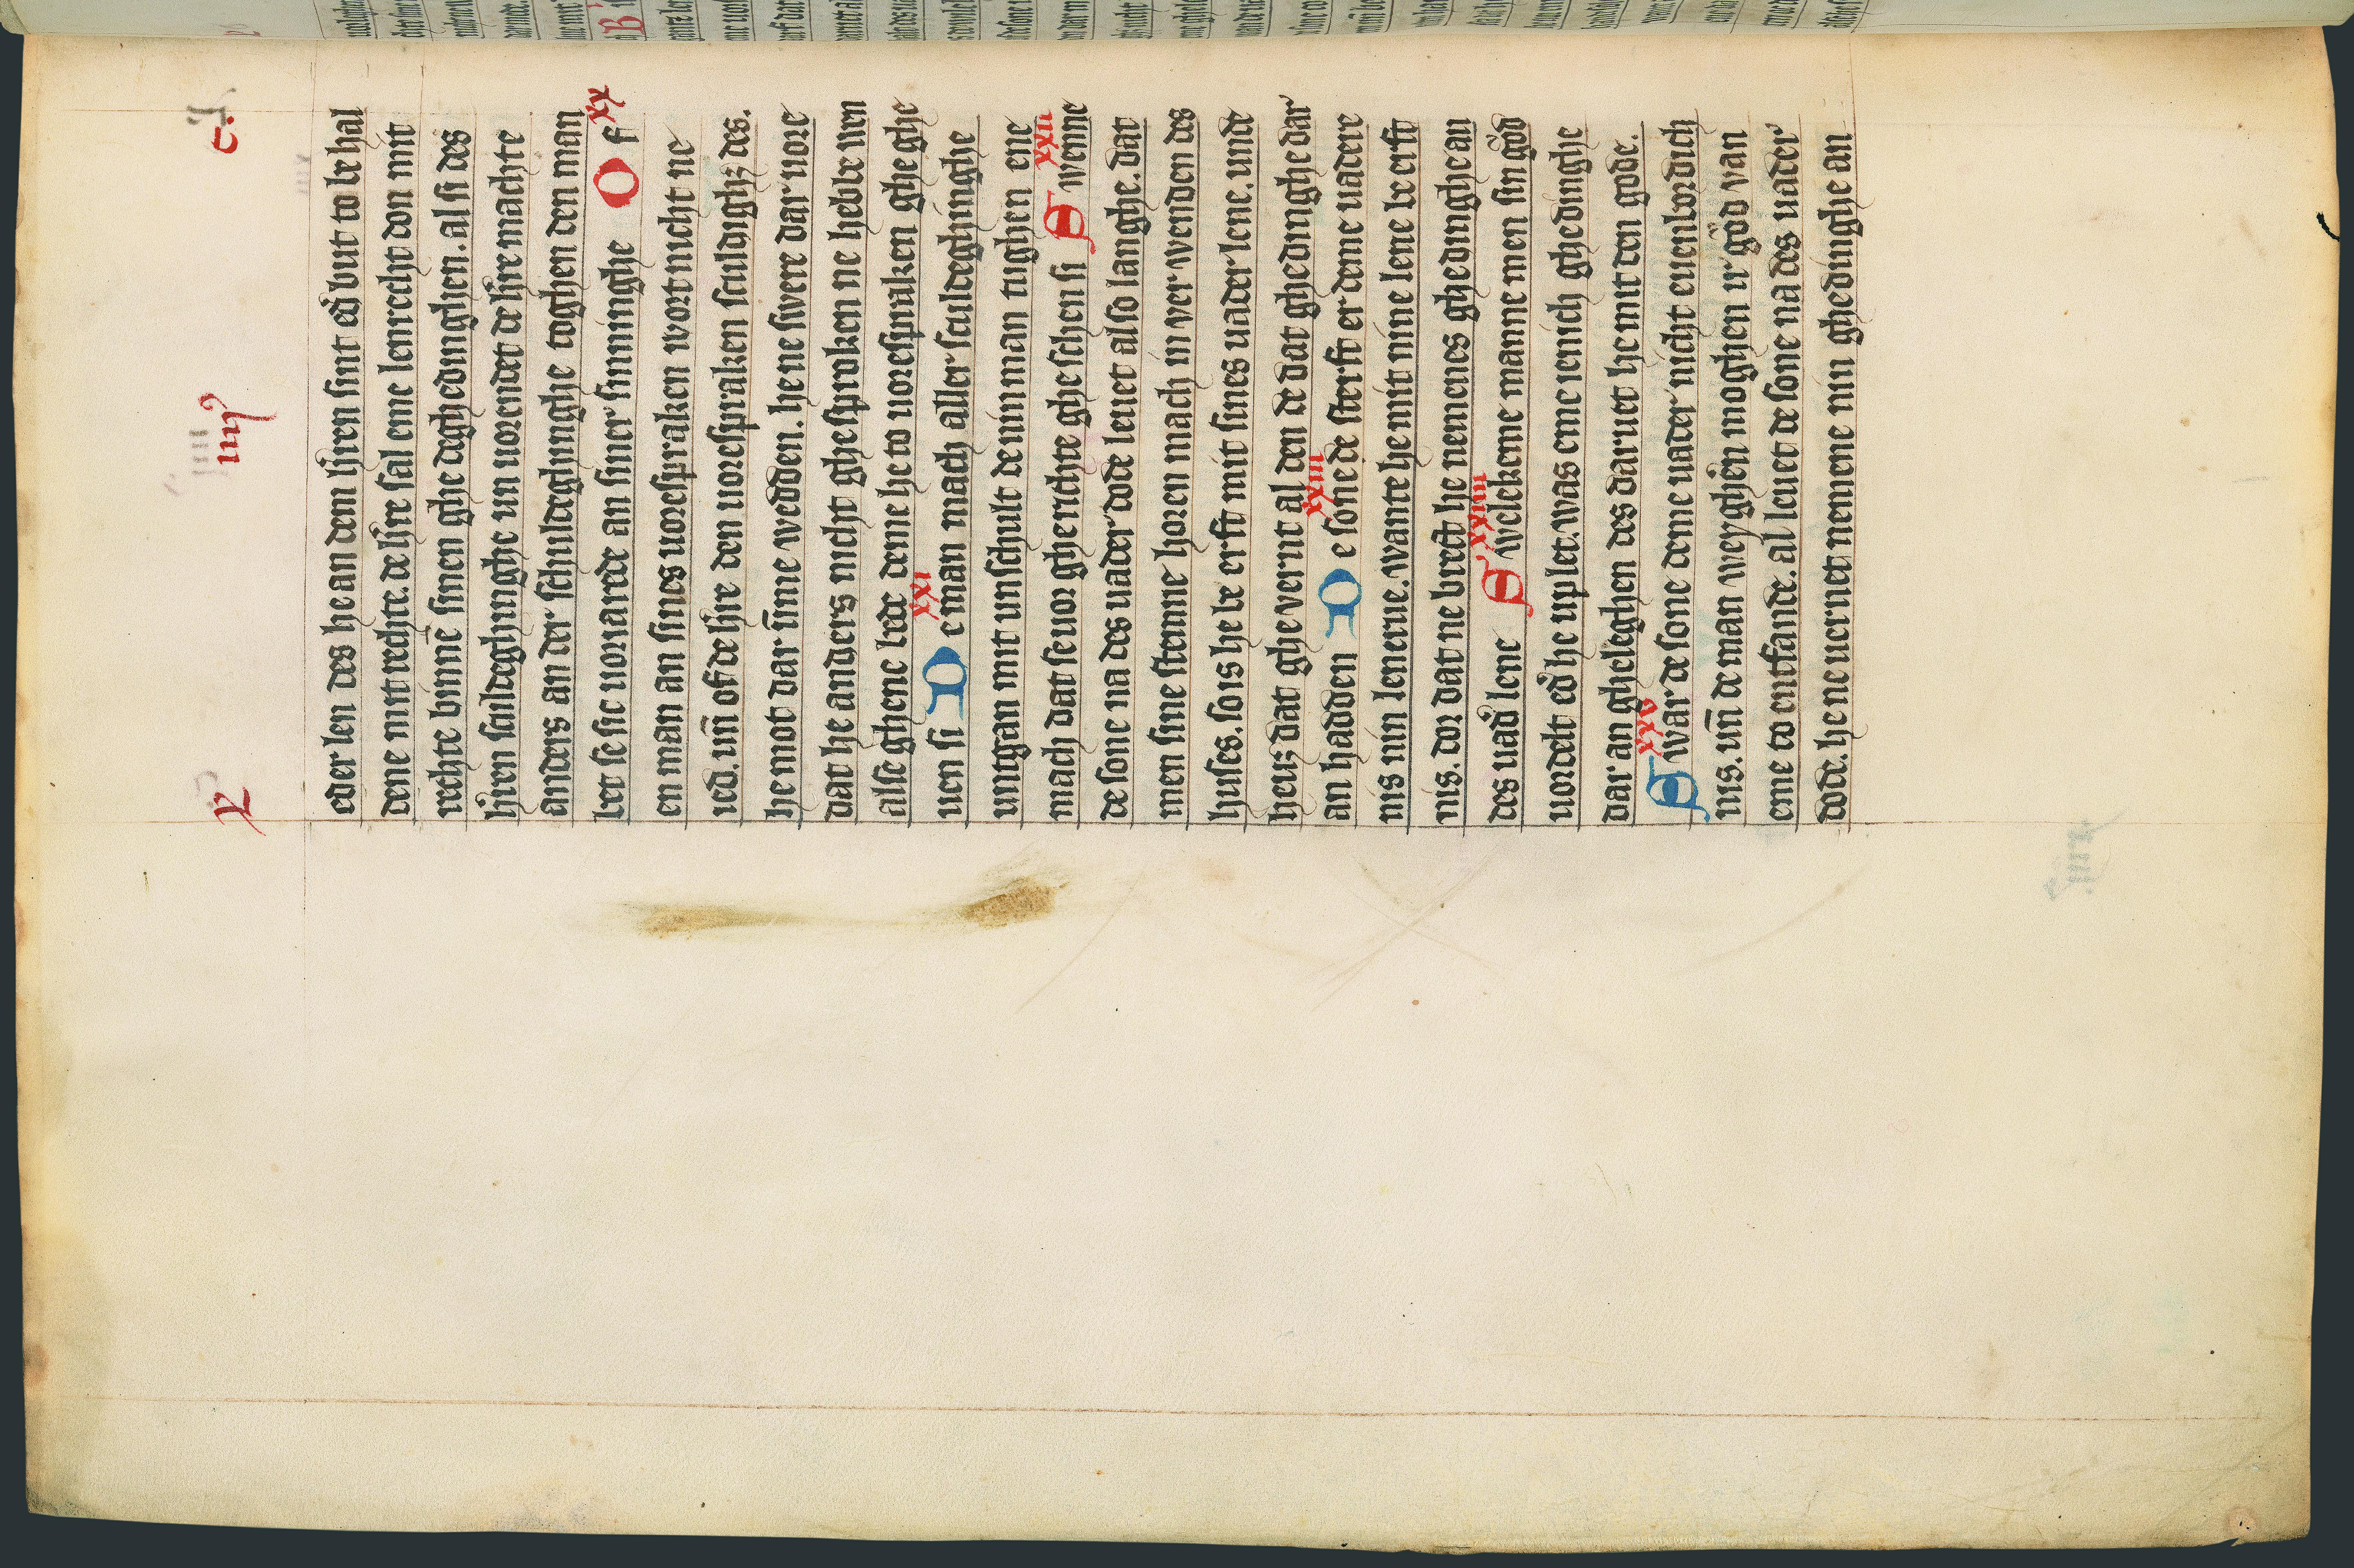 L iiij c.
eder len des he an dem hˢren sint edˢ but to be hal
dene mit rechte. de hˢre sal eme lenrecht don mit
rechte binnē sinen ghe deghedinghen. al si des
hˢren sculdeghinghe un uorendet de hˢre machte
anders an der schuldeghunghe toghen den man
let se sic uorvarede an siner sinninghe Of xx
en man an sines uorespraken wort nicht ne
ied. uñ of de hˢre den uorespraken sculdighz des.
he mot dar ūme wedden. he ne swere dar uore
dat he anders nicht ghesproken ne hebbe wen
alse ghene bede deme he to uorespraken ghe ghe
uen si De man mach aller sculdeghinghe xxi
untgan mit unschult de ninman tughen ene
mach dat se uor gherichte ghe schen si Swenne xxii
de sone na des uader dode leuet also langhe. dat
men sine stemne horen mach in ver wenden des
huses. so is he be erft mit sines uader lene. unde
heuz dat ghe vernt al den de dat ghedinghe dar
an hadden De sone de sterft er deme uadere xxiii
nis nin lenerue. wante he mit nine lene be erft
nis. dor dat ne brect he nemenes ghedinghe an
des uadˢ lene Swelekeme manne men sin gŏd xxiiii
uordelt edˢ he uplet. was eme ienich ghedinghe
dar an gheleghen des daruet he mit den gode.
Swar de sone deme uader nicht euenbordich xxv
nis. uñ de man weyghˢen moghen irˢ gŏd van
eme to entfande. al leuet de sone na des uader
dode. he ne uernet nemene nin ghedinghe an